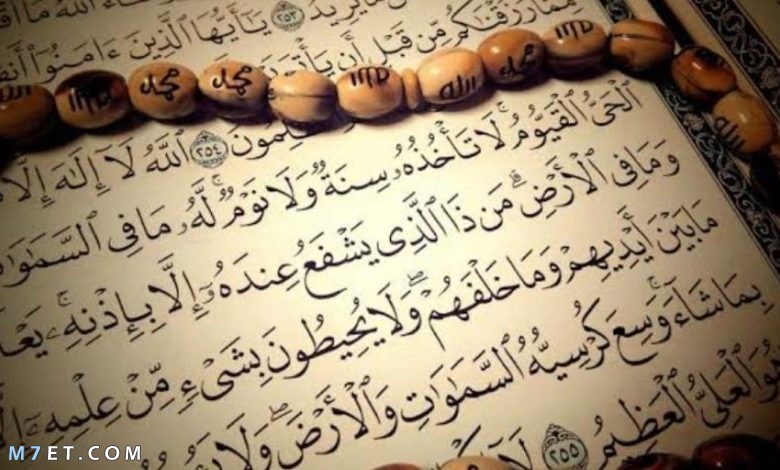 شَآءَ ٱللَّهُ مَا
يُرِيدُ ٢٥٣ يَٰٓأَيُّهَا ٱلَّذِينَ ءَامَنُوٓا۟
مِمَّا رَزَقْنَٰكُم مِّن قَبْلِ أَن
٢٥٤ ٱللَّهُ لَآ إِلَٰهَ إِلَّا
ٱلْحَىُّ ٱلْقَيُّومُ ۚ لَا تَأْخُذُهُۥ سِنَةٌ وَلَا نَوْمٌ ۚ لَّهُۥ مَا فِى ٱلسَّمَٰوَٰتِ
وَمَا فِى ٱلْأَرْضِ ۗ مَن ذَا ٱلَّذِى يَشْفَعُ عِندَهُۥٓ إِلَّا بِإِذْنِهِۦ ۚ
مَا بَيْنَ أَيْدِيهِمْ وَمَا خَلْفَهُمْ ۖ وَلَا يُحِيطُونَ بِشَىْءٍ مِّنْ عِلْمِهِۦٓ
بِمَا شَآءَ ۚ وَسِعَ كُرْسِيُّهُ ٱلسَّمَٰوَٰتِ وَٱلْأَرْضَ ۖ وَلَا
ٱلْعَلِىُّ ٱلْعَظِيمُ ٢٥٥ لَآ
الله محمد محمد الله الله محمد الله الله
M7ET.COM